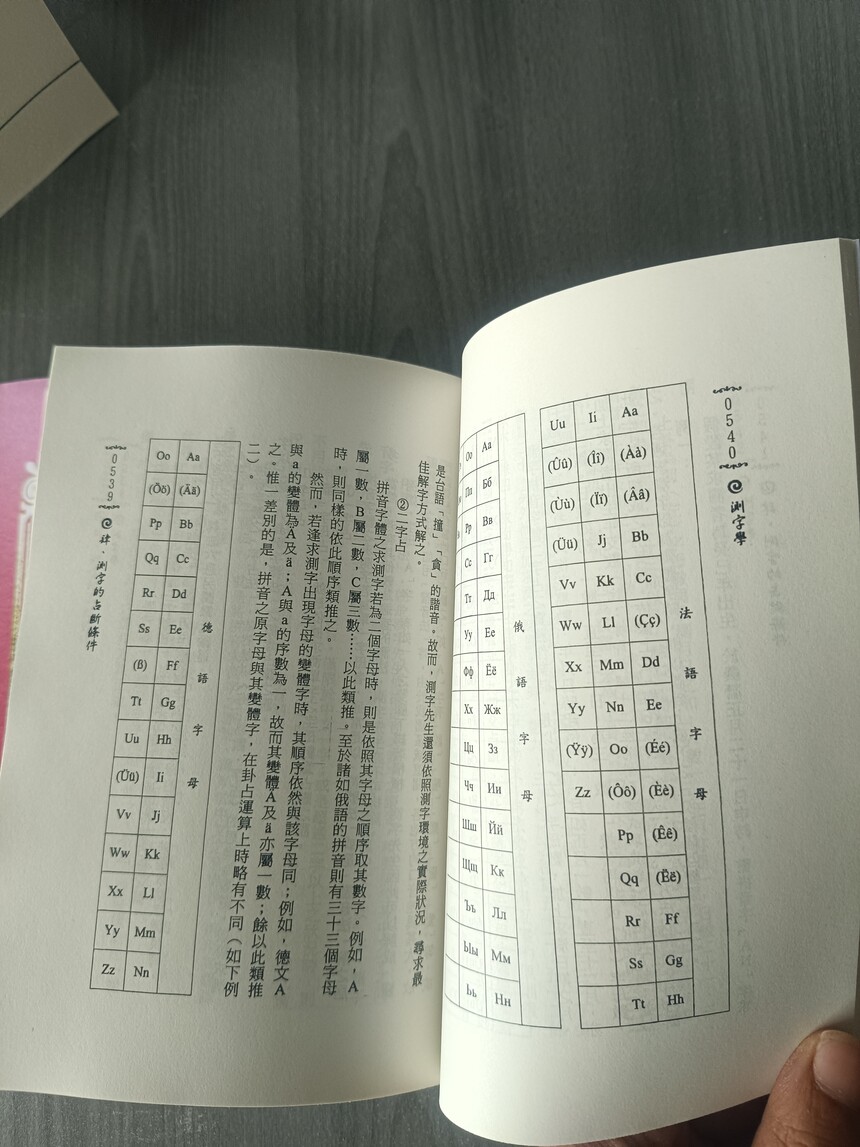 0539
肆、測字的占斷條件
是台語「撞」「貪」的諧音。故而，測字先生還須依照測字環境之實際狀況，尋求最
佳解字方式解之。
②二字占
拼音字體之求測字若為二個字母時，則是依照其字母之順序取其數字。例如，A
屬一數，B屬二數，C屬三數……以此類推。至於諸如俄語的拼音則有三十三個字母
時，則同樣的依此順序類推之。
然而，若逢求測字出現字母的變體字時，其順序依然與該字母同；例如，德文A
與a的變體為Ä及ä；A與a的序數為一，故而其變體Ä及ä亦屬一數；餘以此類推
之。惟一差別的是，拼音之原字母與其變體字，在卦占運算上時略有不同（如下例
二）。
德語字母
Aa
(Ää)
Bb
Cc
Dd
Ee
Ff
Gg
Hh
Ii
Jj
Kk
Ll
Mm
Nn
Oo
(Öö)
Pp
Qq
Rr
Ss
(ß)
Tt
Uu
(Üü)
Vv
Ww
Xx
Yy
Zz
0540
測字學
法語字母
Aa
(Àà)
(Ââ)
Bb
Cc
(Çç)
Dd
Ee
(Éé)
(Èè)
(Êê)
(Ëë)
Ff
Gg
Hh
Ii
(Îî)
(Ïï)
Jj
Kk
Ll
Mm
Nn
Oo
(Ôô)
Pp
Qq
Rr
Ss
Tt
Uu
(Ûû)
(Ùù)
(Üü)
Vv
Ww
Xx
Yy
(Ÿÿ)
Zz
俄語字母
Аа
Бб
Вв
Гг
Дд
Ее
Ёё
Жж
Зз
Ии
Йй
Кк
Лл
Мм
Нн
Оо
Пп
Рр
Сс
Тт
Уу
Фф
Хх
Цц
Чч
Шш
Щщ
Ъъ
Ыы
Ьь